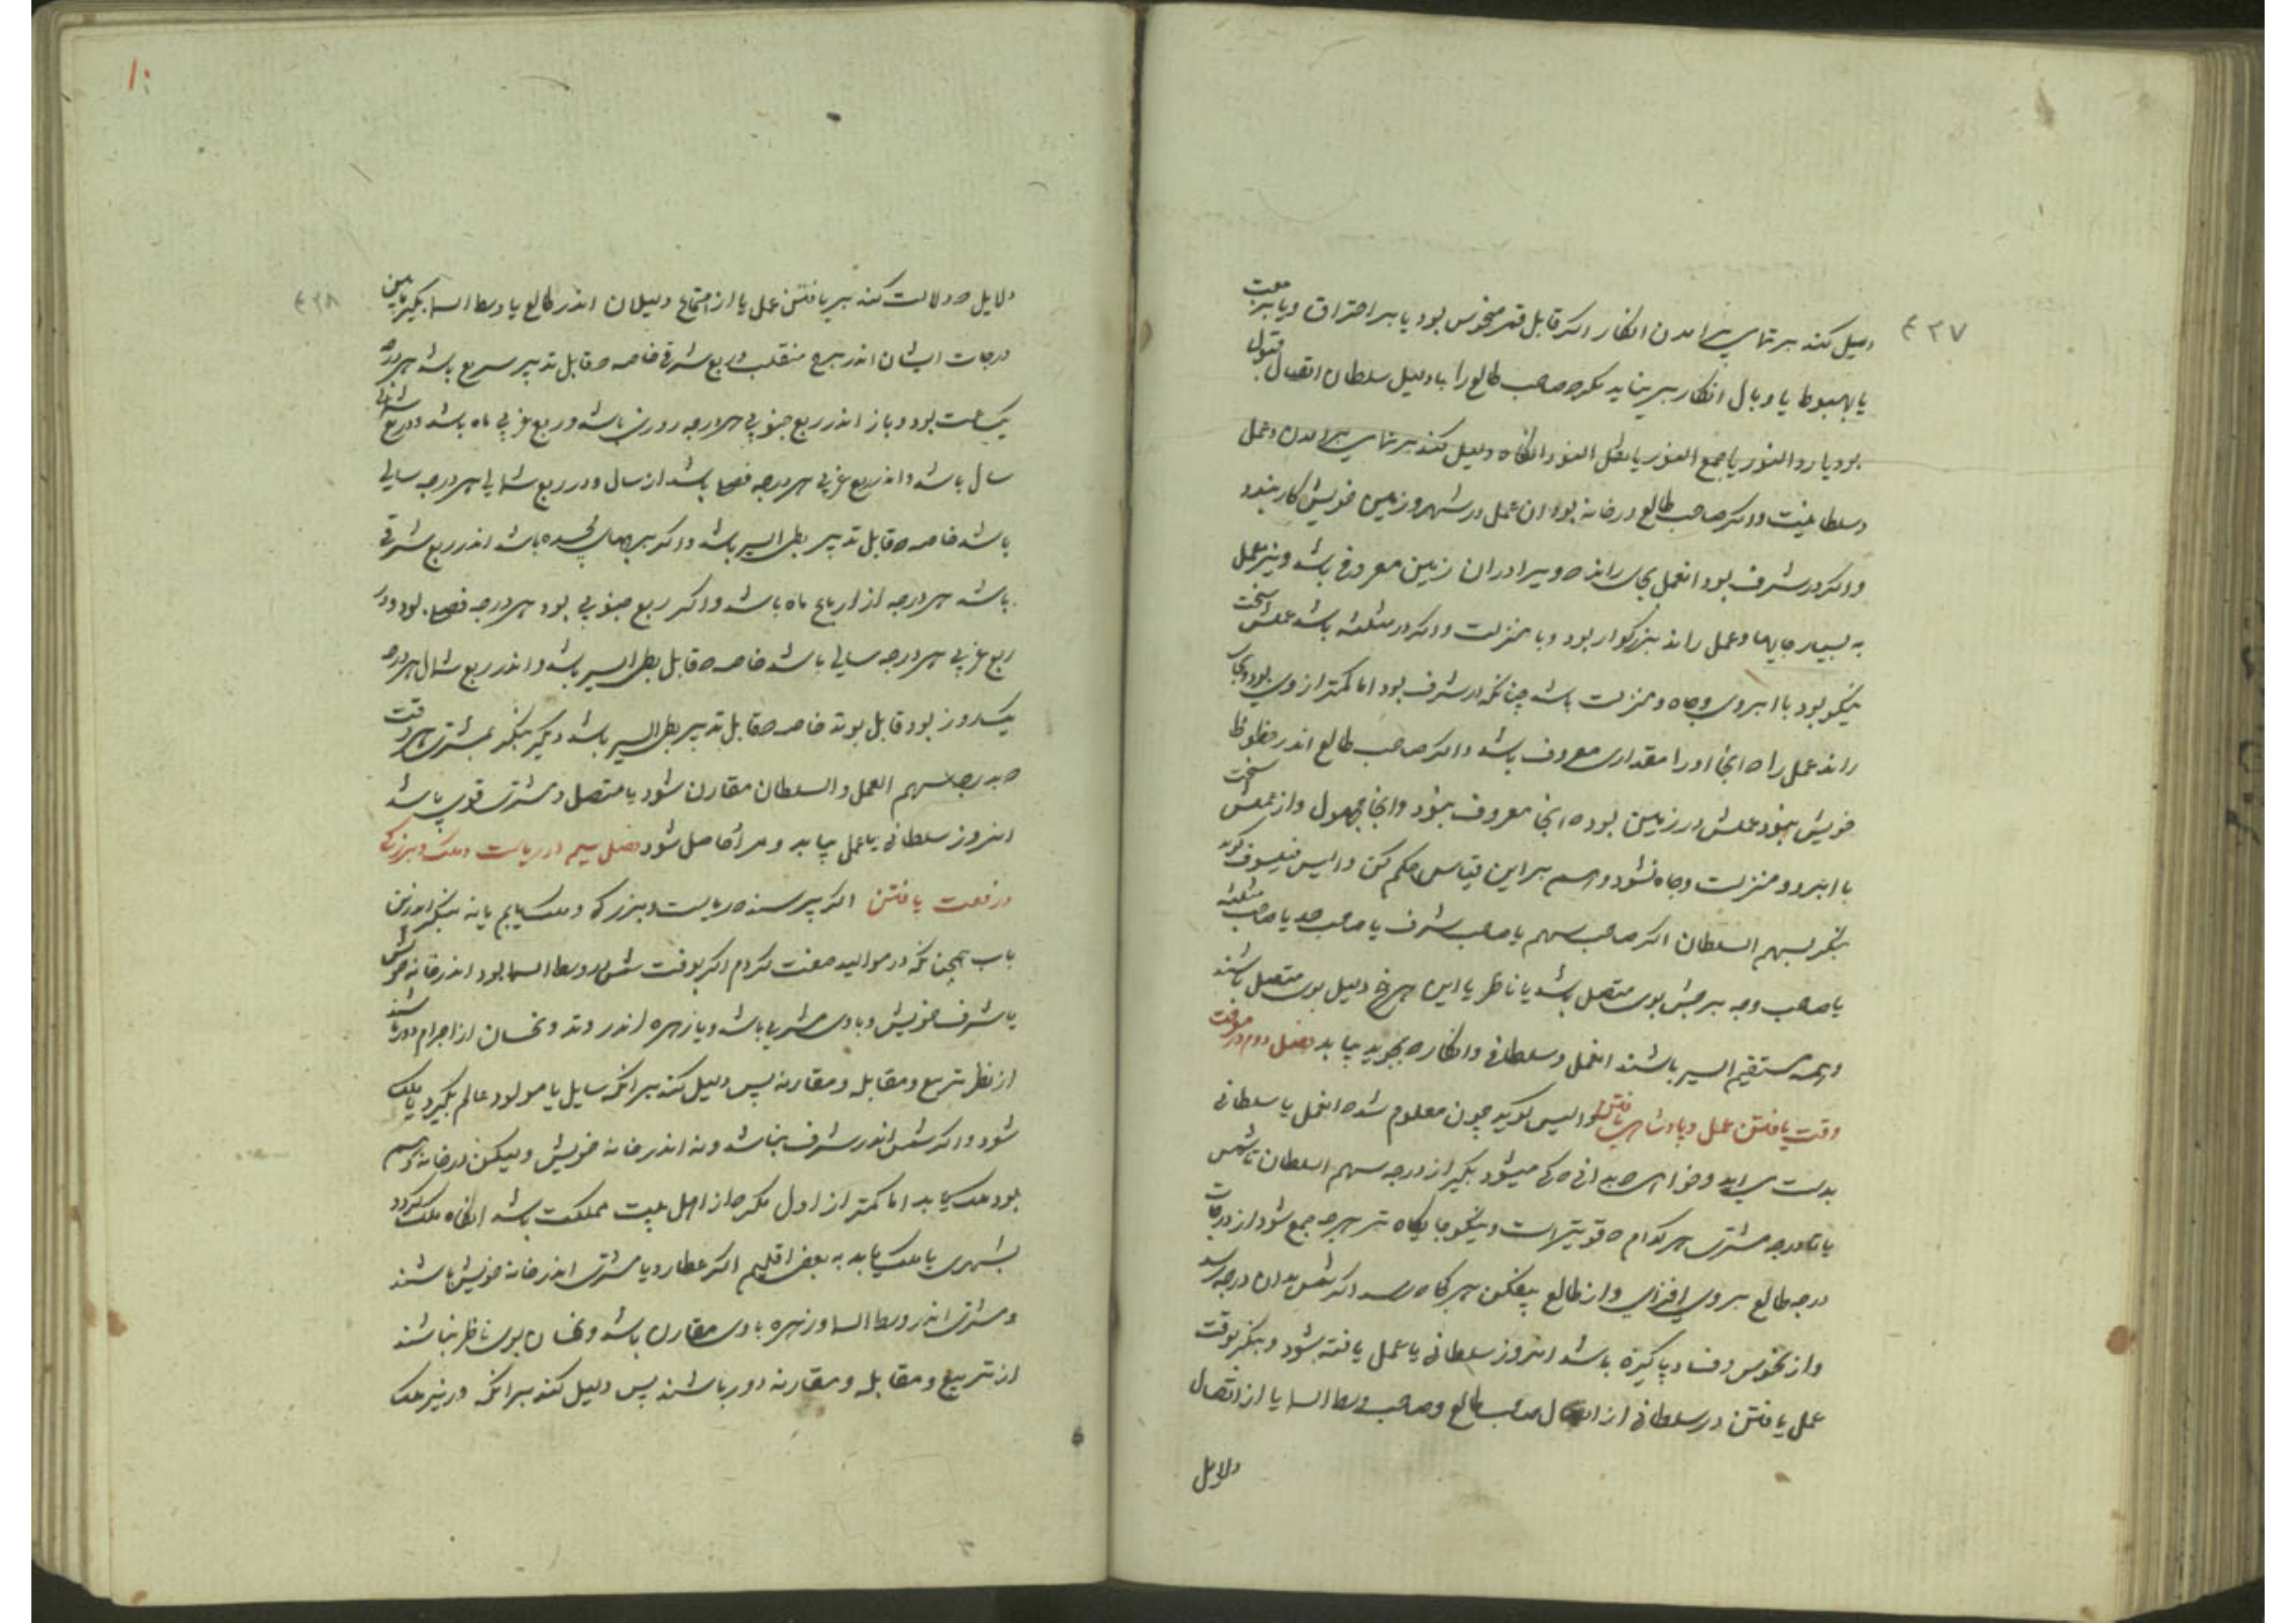 ۴۳۷
دلیل کند بر تمامی برامدن انکار اکر قابل قمر منحوس بود یا بر احتراق و یا برجعت
یا بهبوط یا وبال انکار بر نیاید مکر که صاحب طالع را با دلیل سلطان اتصال قبول
بود یا رد النور یا جمع النور یا نقل النور انکاه دلیل کند بر تمامی برامدن و عمل
و سلطانیت و اکر صاحب طالع در خانه بود ان عمل در شهر و زمین خویش کار بندد
و اکر در شرف بود انعمل بجای راند که ویرا دران زمین معروفی باشد و نیز عمل
به بسیار جایها و عمل راند بزرکوار بود و با منزلت و اکر در مثلثه باشد عملش سخت
نیکو بود با ابروی و جاه و منزلت باشد چنانکه در شرف بود اما کمتر از وی بود و بجای
راند عمل را که انجا او را مقداری معروف باشد و اکر صاحب طالع اندر حظوظ
خویش نبود عملش در زمین بود که انجا معروف نبود و انجا مجهول و از عملش سخت
با ابرو و منزلت و جاه نشود و هم بر این قیاس حکم کن و الیس فیلسوف کوید
بنکر بسهم السلطان اکر صاحب سهم یا صاحب شرف یا صاحب حد یا صاحب مثلثه
یا صاحب وجه برجش بوی متصل باشد یا ناظر یا این هر پنج دلیل بوی متصل باشند
و همه مستقیم السیر باشند انعمل و سلطانی و انکار که بجوید بیابد فصل دوم در معرفت
وقت یافتن عمل و پادشاهی یافتن والیس کوید چون معلوم شد که انعمل یا سلطانی
بدست می اید و خواهی که بدانی که کی میشود بکیر از درجه سهم السلطان تا شمس
یا تا درجه مشتری هر کدام که قویتر است و نیکو جایکاه تر هرچه جمع شود از درجات
درجه طالع بر وی افزای و از طالع بیفکن هر کاه رسد اکر شمس بدان درجه رسد
و از نحوس و فساد پاکیزه باشد انروز سلطانی یا عمل یافته شود و بنکر بوقت
عمل یافتن در سلطانی از اتصال صاحب طالع و صاحب وسط السما یا از اتصال
دلایل
۱۰
۴۳۸
دلایل که دلالت کند بر یافتن عمل یا از اجتماع دلیلان اندر طالع یا وسط السما بکیر مابین
درجات ایشان اندر برج منقلب و ربع شرقی خاصه که قابل تدبیر سریع باشد هر درجه
یکساعت بود و باز اندر ربع جنوبی هر درجه روزی باشد و ربع غربی ماه باشد و در ربع شمالی
سال باشد و اندر ربع غربی هر درجه فصلی باشد از سال و در ربع شمالی هر درجه سالی
باشد خاصه که قابل تدبیر بطی السیر باشد و اکر ببرجهای ذو جسده باشد اندر ربع شرقی
باشد هر درجه از ارباع ماه باشد و اکر ربع جنوبی بود هر درجه فصلی بود و در
ربع غربی هر درجه سالی باشد خاصه که قابل بطی السیر باشد و اندر ربع شمال هر درجه
یکروز بود قابل بوند خاصه که قابل تدبیر بطی السیر باشد دیکر بنکر بمشتری هر وقت
که بدرجه سهم العمل و السلطان مقارن شود یا متصل و مشتری قوی باشد
انروز سلطانی یا عمل بیابد و مراد حاصل شود فصل سیم در ریاست و ملک و بزرکی
و رفعت یافتن اکر پرسند که ریاست و بزرکی و ملک یابم یا نه بنکر اندرین
باب همچنانکه در موالید صفت کردم اکر بوقت شمس در وسط السما بود اندر خانه خویش
یا شرف خویش و با وی مشتری باشد و یا زهره اندر وتد و نحسان از اجرام دور باشند
از نظر تربیع و مقابله و مقارنه پس دلیل کند برانکه سایل یا مولود عالم بکیرد یا ملک
شود و اکر شمس اندر شرف نباشد و نه اندر خانه خویش و لیکن در خانه دهم
بود ملک بیابد اما کمتر از اول مکر که از اهل بیت مملکت باشد انکاه ملک کردد
بشهری یا ملک یابد به بعضی اقلیم اکر عطارد یا مشتری اندر خانه خویش باشند
و مشتری اندر وسط السما و زهره با وی مقارن باشد و نحسان بوی ناظر نباشند
از تربیع و مقابله و مقارنه دور باشند پس دلیل کند برانکه در نیز ملک